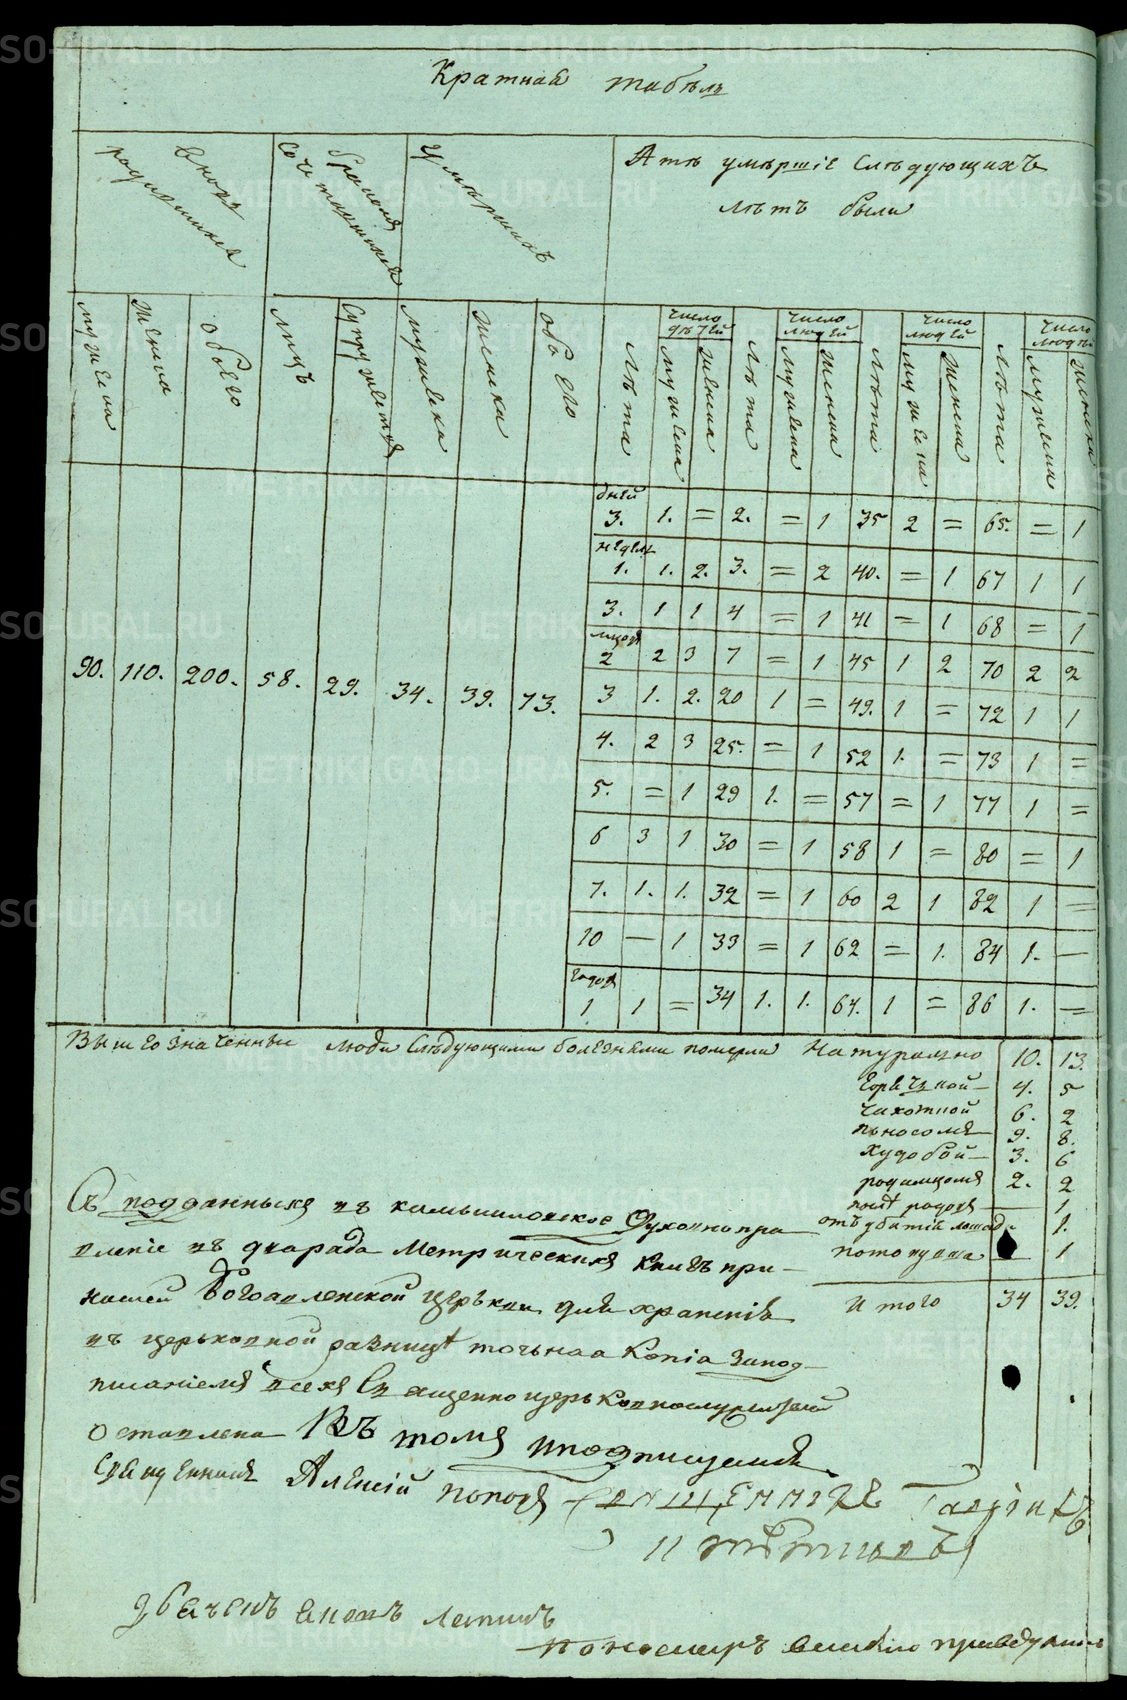 Краткай табѣль
вновь родившихся
бракомъ Сочетавшихся
Умѣршихъ
А тѣ умѣршіе Слѣдующихъ
лѣтъ были
мужеска
Женска
обоего
лицъ
Супружества
мужеска
женска
обоего
Лѣта
число дѣтей
мужеска
женска
Лѣта
число людей
мужеска
женска
Лѣта
число людей
мужеска
женска
Лѣта
число людей
мужеска
женска
90. 110. 200. 58. 29. 34. 39. 73.
дней
3. 1. = 2. = 1 35 2 = 65. = 1
недель
1. 1. 2. 3. = 2 40. = 1 67 1 1
3. 1 1 4 = 1 41 = 1 68 = 1
2 2 3 7 = 1 45 1 2 70 2 2
3 1. 2. 20 1 = 49. 1 = 72 1 1
4. 2 3 25. = 1 52 1. = 73 1 =
5. = 1 29 1. = 57 = 1 77 1 =
6 3 1 30 = 1 58 1 = 80 = 1
7. 1. 1. 32 = 1 60 2 1 82 1 =
10 — 1 33 = 1 62 = 1. 84 1. —
годовъ
1 1 = 34 1. 1. 64. 1 = 86 1. =
Вышеозначенные люди Слѣдующими болезнями померли Натурально 10. 13.
Горячкой 4. 5
чихоткой 6. 2
поносомъ 9. 8.
Худобой 3. 6
родимцомъ 2. 2
родовъ — 1
отъ убитія лошад. 1.
— 1
Итого 34 39.
Съ подданныхъ въ камышловское Духовно пра
вленіе въ Метрическихъ Книгъ при
нашей Богоявленской церькви для храненія
въ церьковной ризницѣ точьная Копія Запод
писаніемъ всехъ Священно церьковнослужителей
оставлена Въ томъ и подписуемся
Священникъ Алексій Поповъ Священникъ
Пономарь